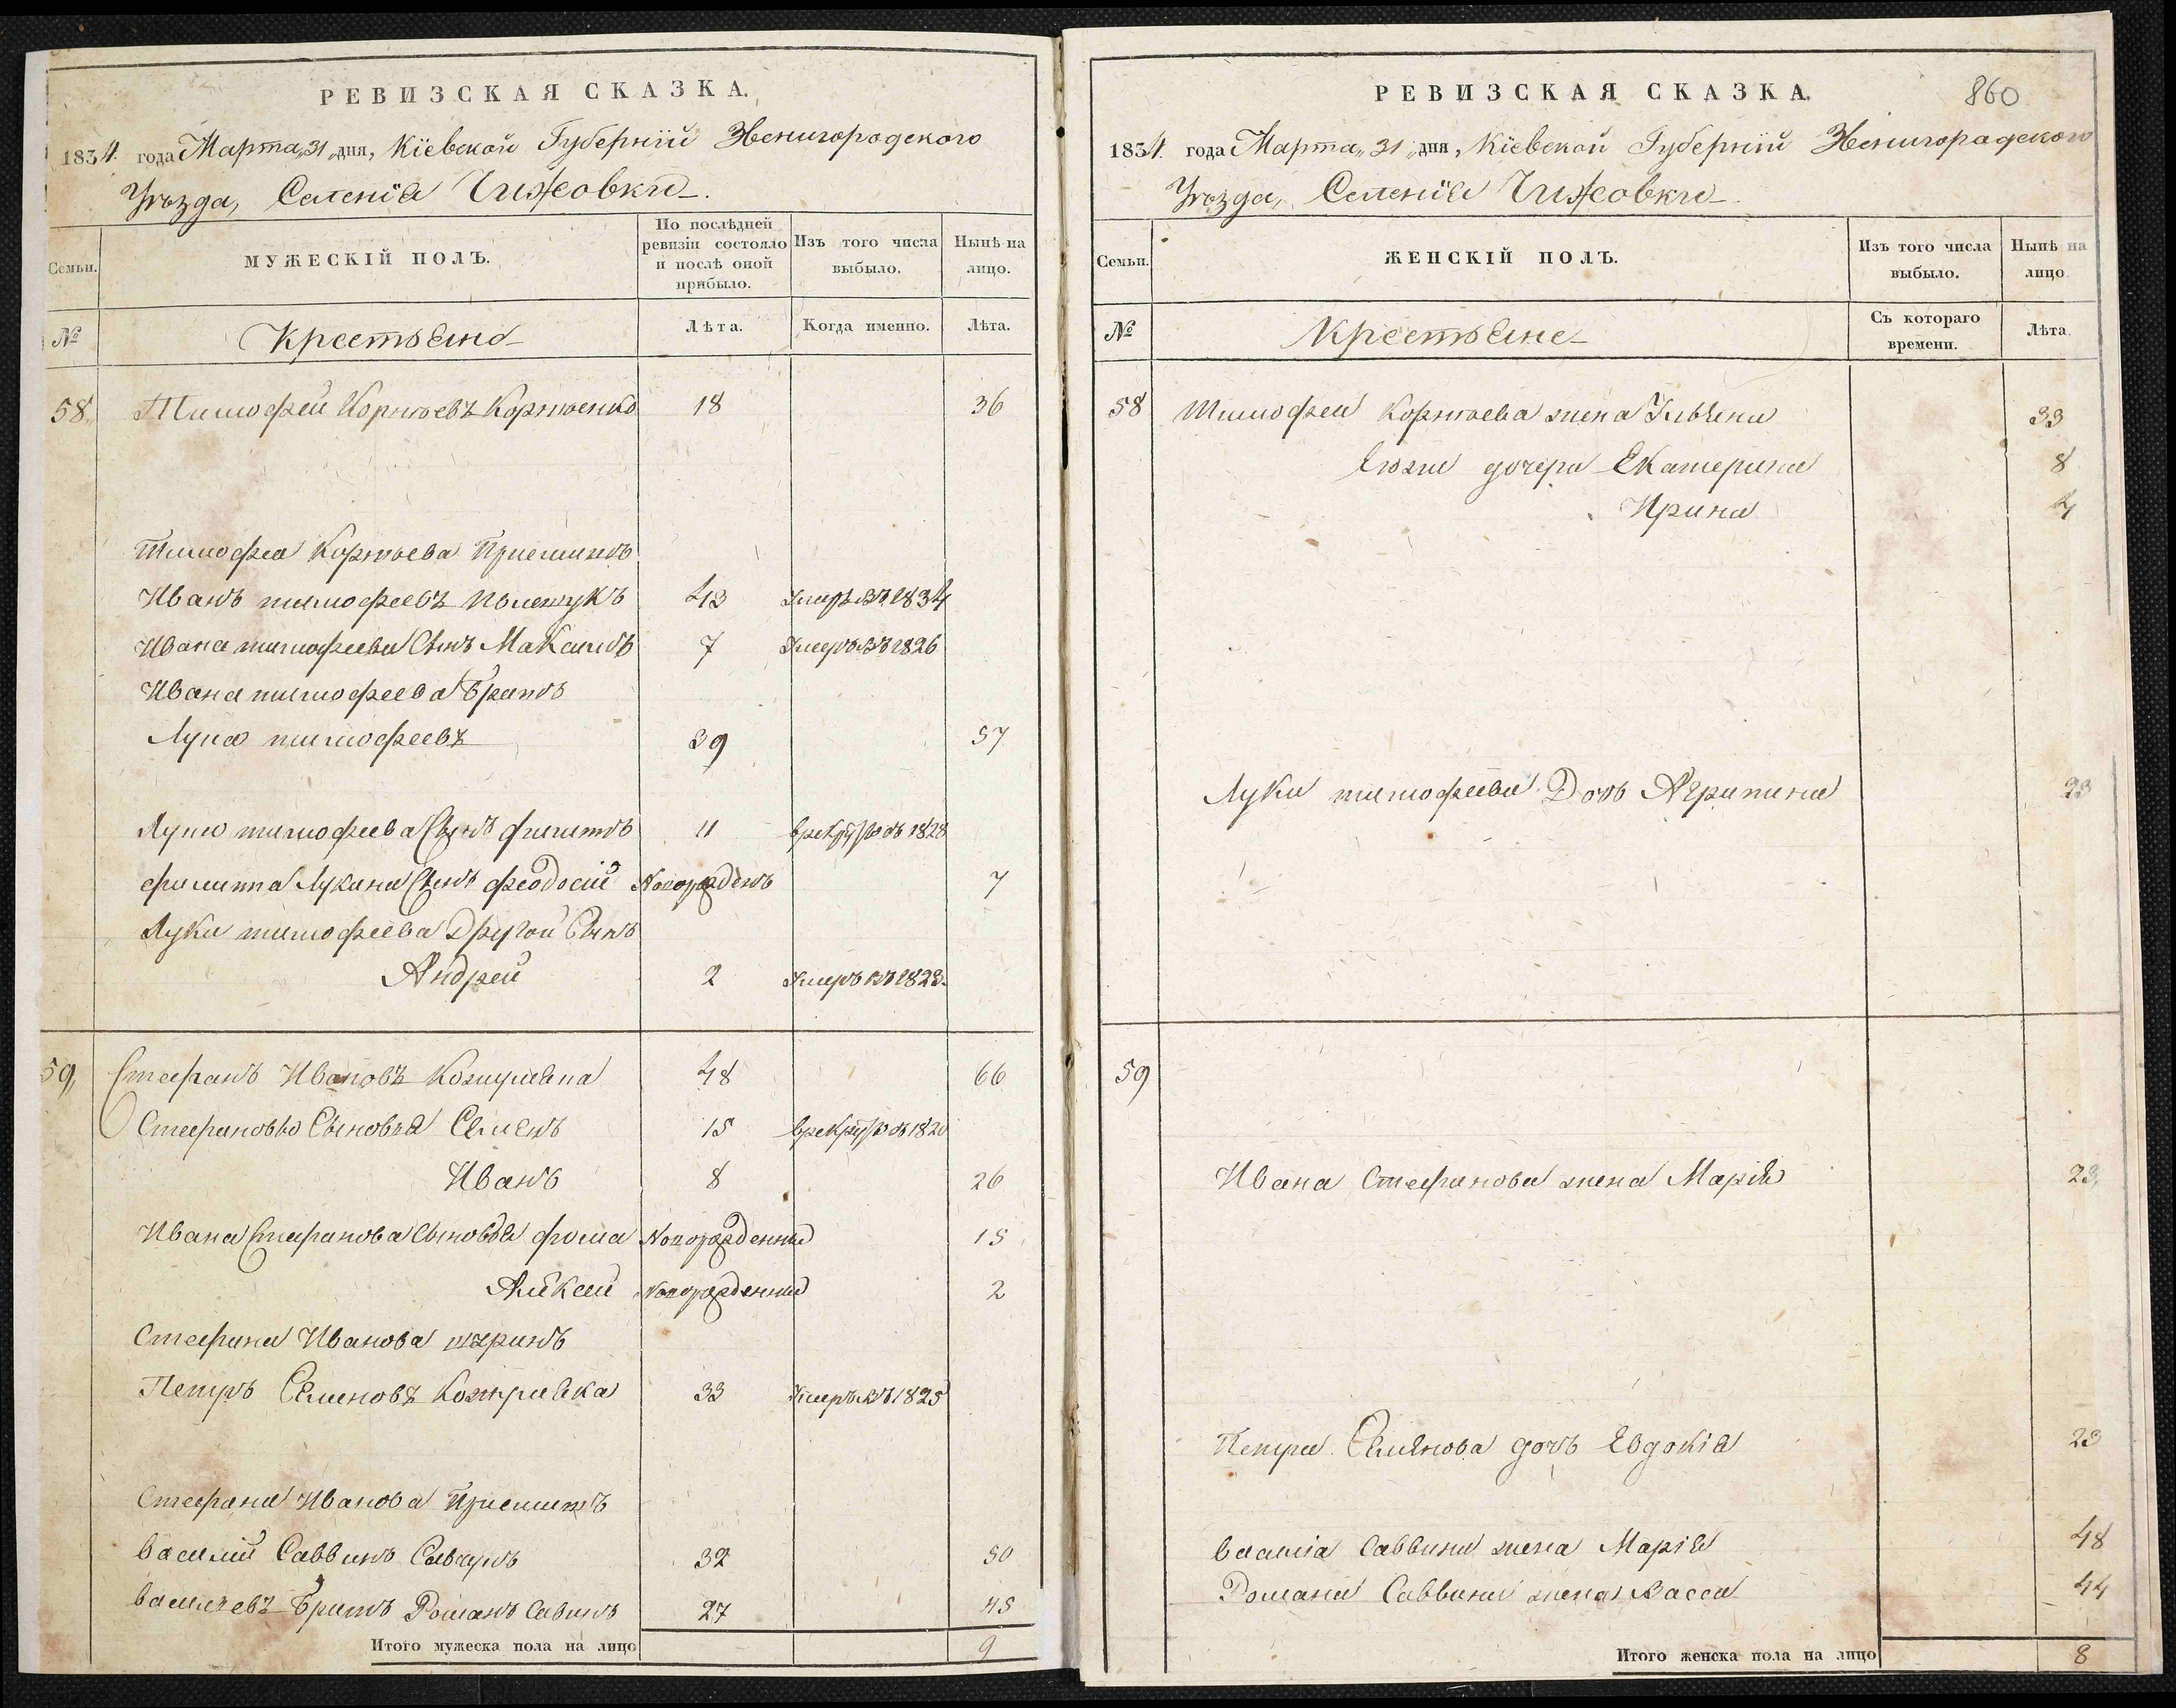 РЕВИЗСКАЯ СКАЗКА.
1834. года Марта „31„ дня, Кіевской Губерніи Звенигородского
Уѣзда, Селенія Чижовки
Семьи.
МУЖЕСКІЙ ПОЛЪ.
По послѣдней ревизіи состояло и послѣ оной прибыло.
Изъ того числа выбыло.
Нынѣ на лицо.
№
Крестьяне
Лѣта.
Когда именно.
Лѣта.
58. Тимофей Корнѣевъ Корнѣенко 18 36
Тимофея Корнѣева Приемышъ
Иванъ тимофеевъ 43 Умеръ въ 1834
Ивана тимофеева Сынъ Максимъ 7 Умеръ въ 1826
Ивана тимофеева Братъ
Лука тимофеевъ 39 57
Луки тимофеева Сынъ филипъ 11 врекруты въ 1828
филиппа Лукина Сынъ феодосій Новорожденъ 7
Луки тимофеева Другой Сынъ
Андрей 2 Умеръ въ 1823.
59, Стефанъ Ивановъ 48 66
Стефановы Сыновья Семенъ 15 врекруты въ 1820
Иванъ 8 26
Ивана Стефанова Сыновья фома Новорожденный 15
Алексей Новорожденный 2
Стефана Иванова
Петръ Семеновъ 33 Умеръ въ 1825
Стефана Иванова Приемышъ
Василій Саввинъ 32 50
Васильевъ Братъ Романъ Савинъ 27 45
Итого мужеска пола на лицо 9
РЕВИЗСКАЯ СКАЗКА.
860
1834. года Марта „31„ дня, Кіевской Губерніи Звенигородского
Уѣзда, Селенія Чижовки
Семьи.
ЖЕНСКІЙ ПОЛЪ.
Изъ того числа выбыло.
Нынѣ на лицо.
№
Крестьяне
Съ котораго времени.
Лѣта.
58 Тимофея Корнѣева жена Ульяна 33
Его же дочери Екатерина 8
Ирина 4
Луки тимофеева Дочь Агрипина 23
59
Ивана Стефанова жена Марія 23,
Петра Семенова дочь Евдокія 23
Василія Саввина жена Марія 48
Романа Саввина жена Васса 44
Итого женска пола на лицо 8